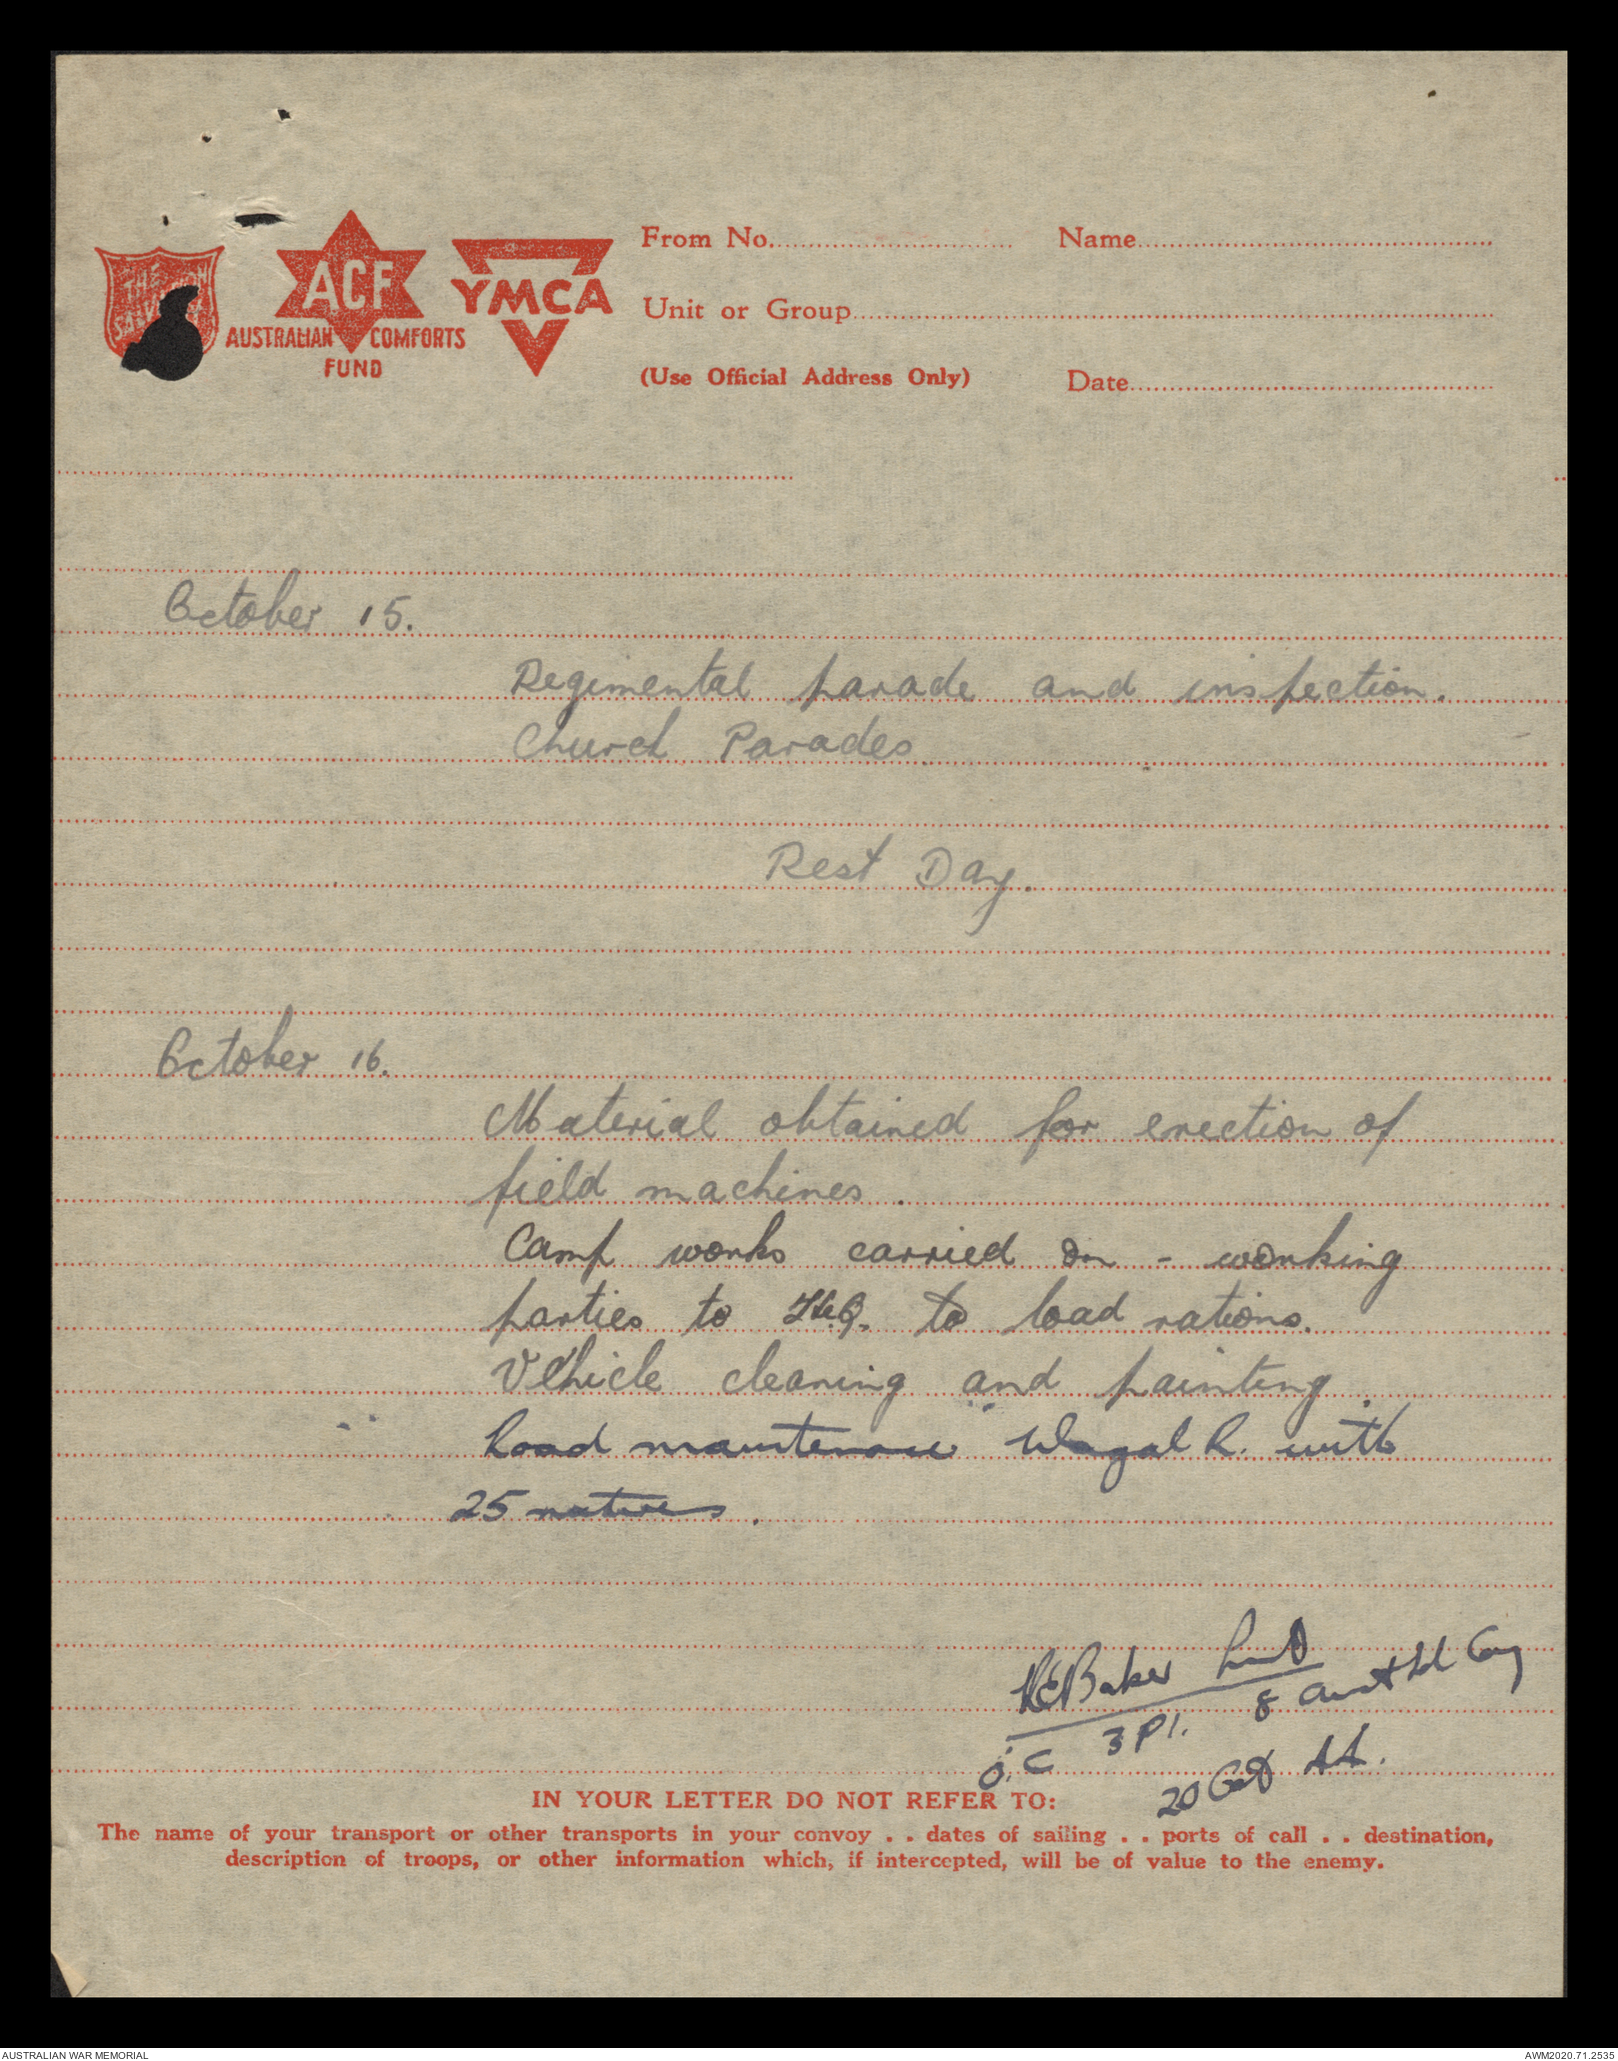 THE SALVATION
ACF
AUSTRALIAN COMFORTS
FUND
YMCA
From No. Name
Unit or Group
(Use Official Address Only) Date
October 15.
Regimental parade and inspection.
Church Parades
Rest Day.
October 16.
Material obtained for erection of
field machines.
Camp works carried on - working
parties to H.Q. to load rations.
Vehicle cleaning and painting.
Road maintenance Wagal R. with
25 natives.
REBaker Lieut
O.C 3 Pl. 8 Aust Fd Coy
20 Oct 44.
IN YOUR LETTER DO NOT REFER TO:
The name of your transport or other transports in your convoy . . dates of sailing . . ports of call . . destination,
description of troops, or other information which, if intercepted, will be of value to the enemy.
AUSTRALIAN WAR MEMORIAL AWM2020.71.2535